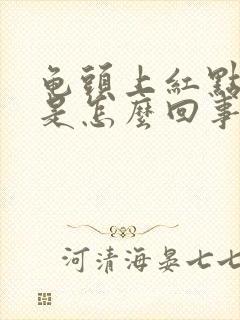 龟頭上紅點
是怎麼回事
河清海晏七七